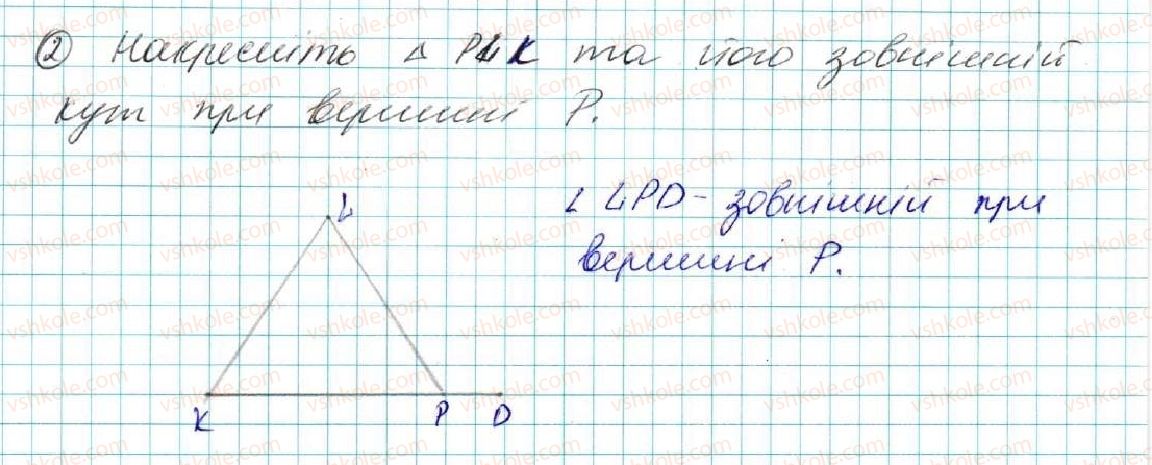 ② Накресліть △ PLK та його зовнішній
кут при вершині P.
L
∠ LPD - зовнішній при
вершині P.
K P D
vshkole.com